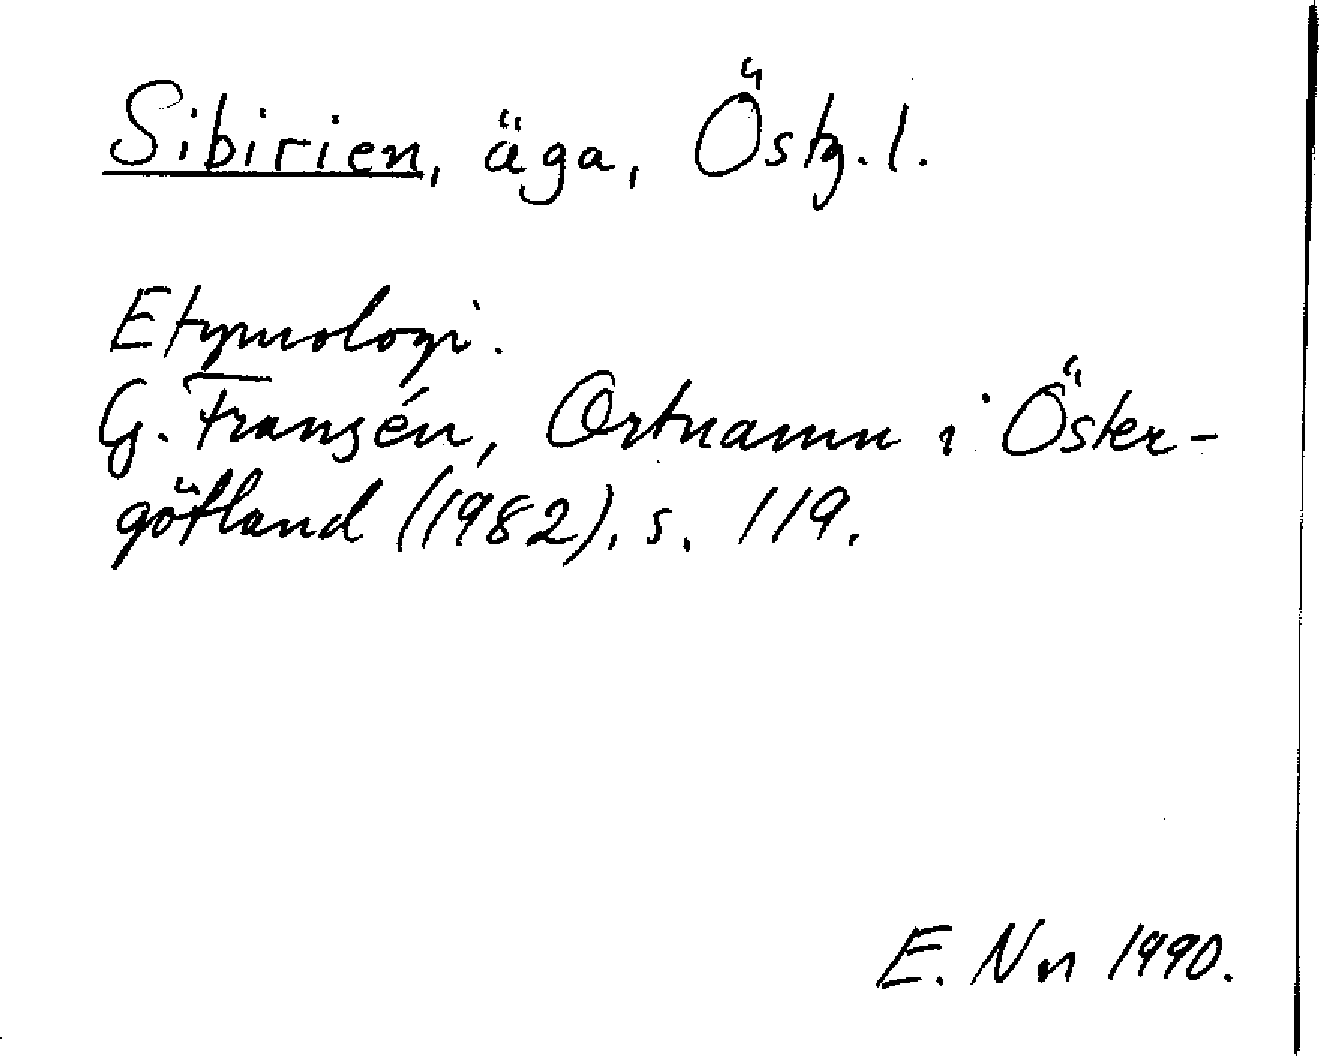 Sibirien, äga, Östg. l.
Etymologi.
G. Franzén, Ortnamn i Öster-
götland (1982), s. 119.
E. Nn 1990.